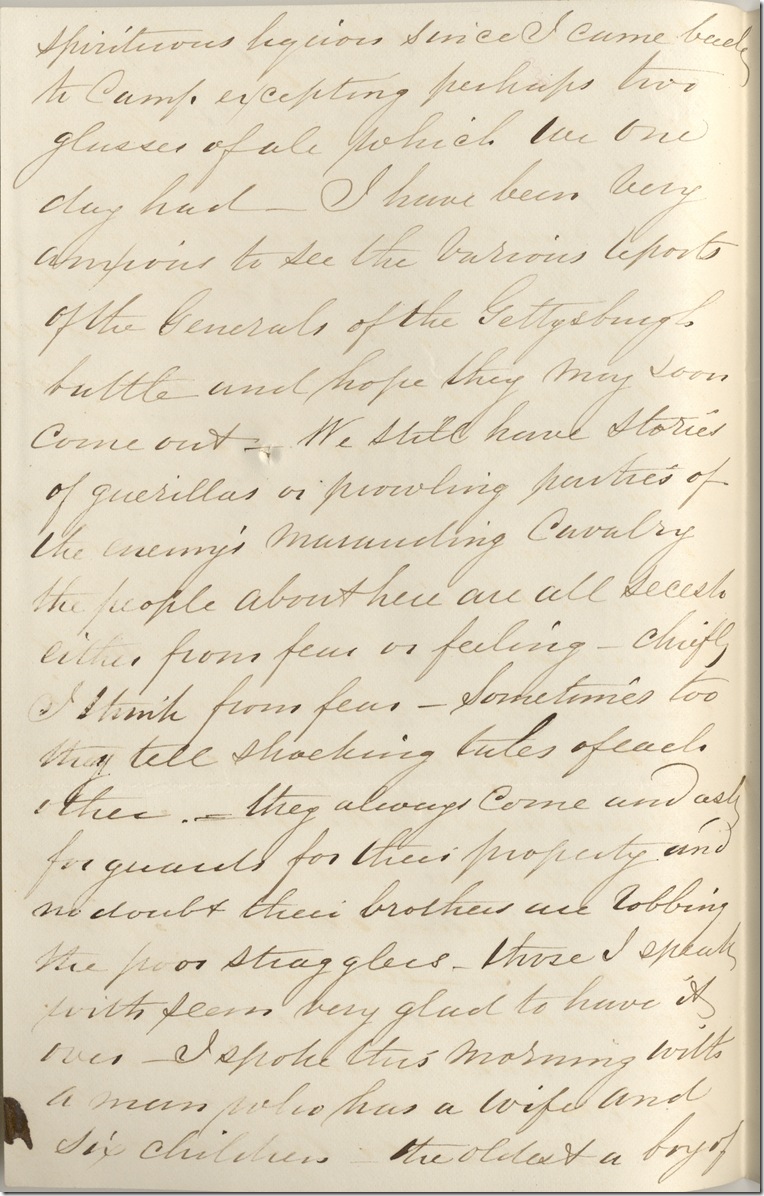 spirituous liquors since I came back
to Camp. excepting perhaps two
glasses of ale which we one
day had — I have been very
anxious to see the various reports
of the Generals of the Gettysburgh
battle and hope they may soon
come out — We still have stories
of guerillas or prowling parties of
the enemy's marauding Cavalry
the people about here are all secesh
either from fear or feeling — chiefly
I think from fear — Sometimes too
they tell shocking tales of each
other. — they always come and ask
for guards for their property and
no doubt their brothers are robbing
the poor stragglers — those I speak
with seem very glad to have it
over — I spoke this morning with
a man who has a wife and
six children — the oldest a boy of